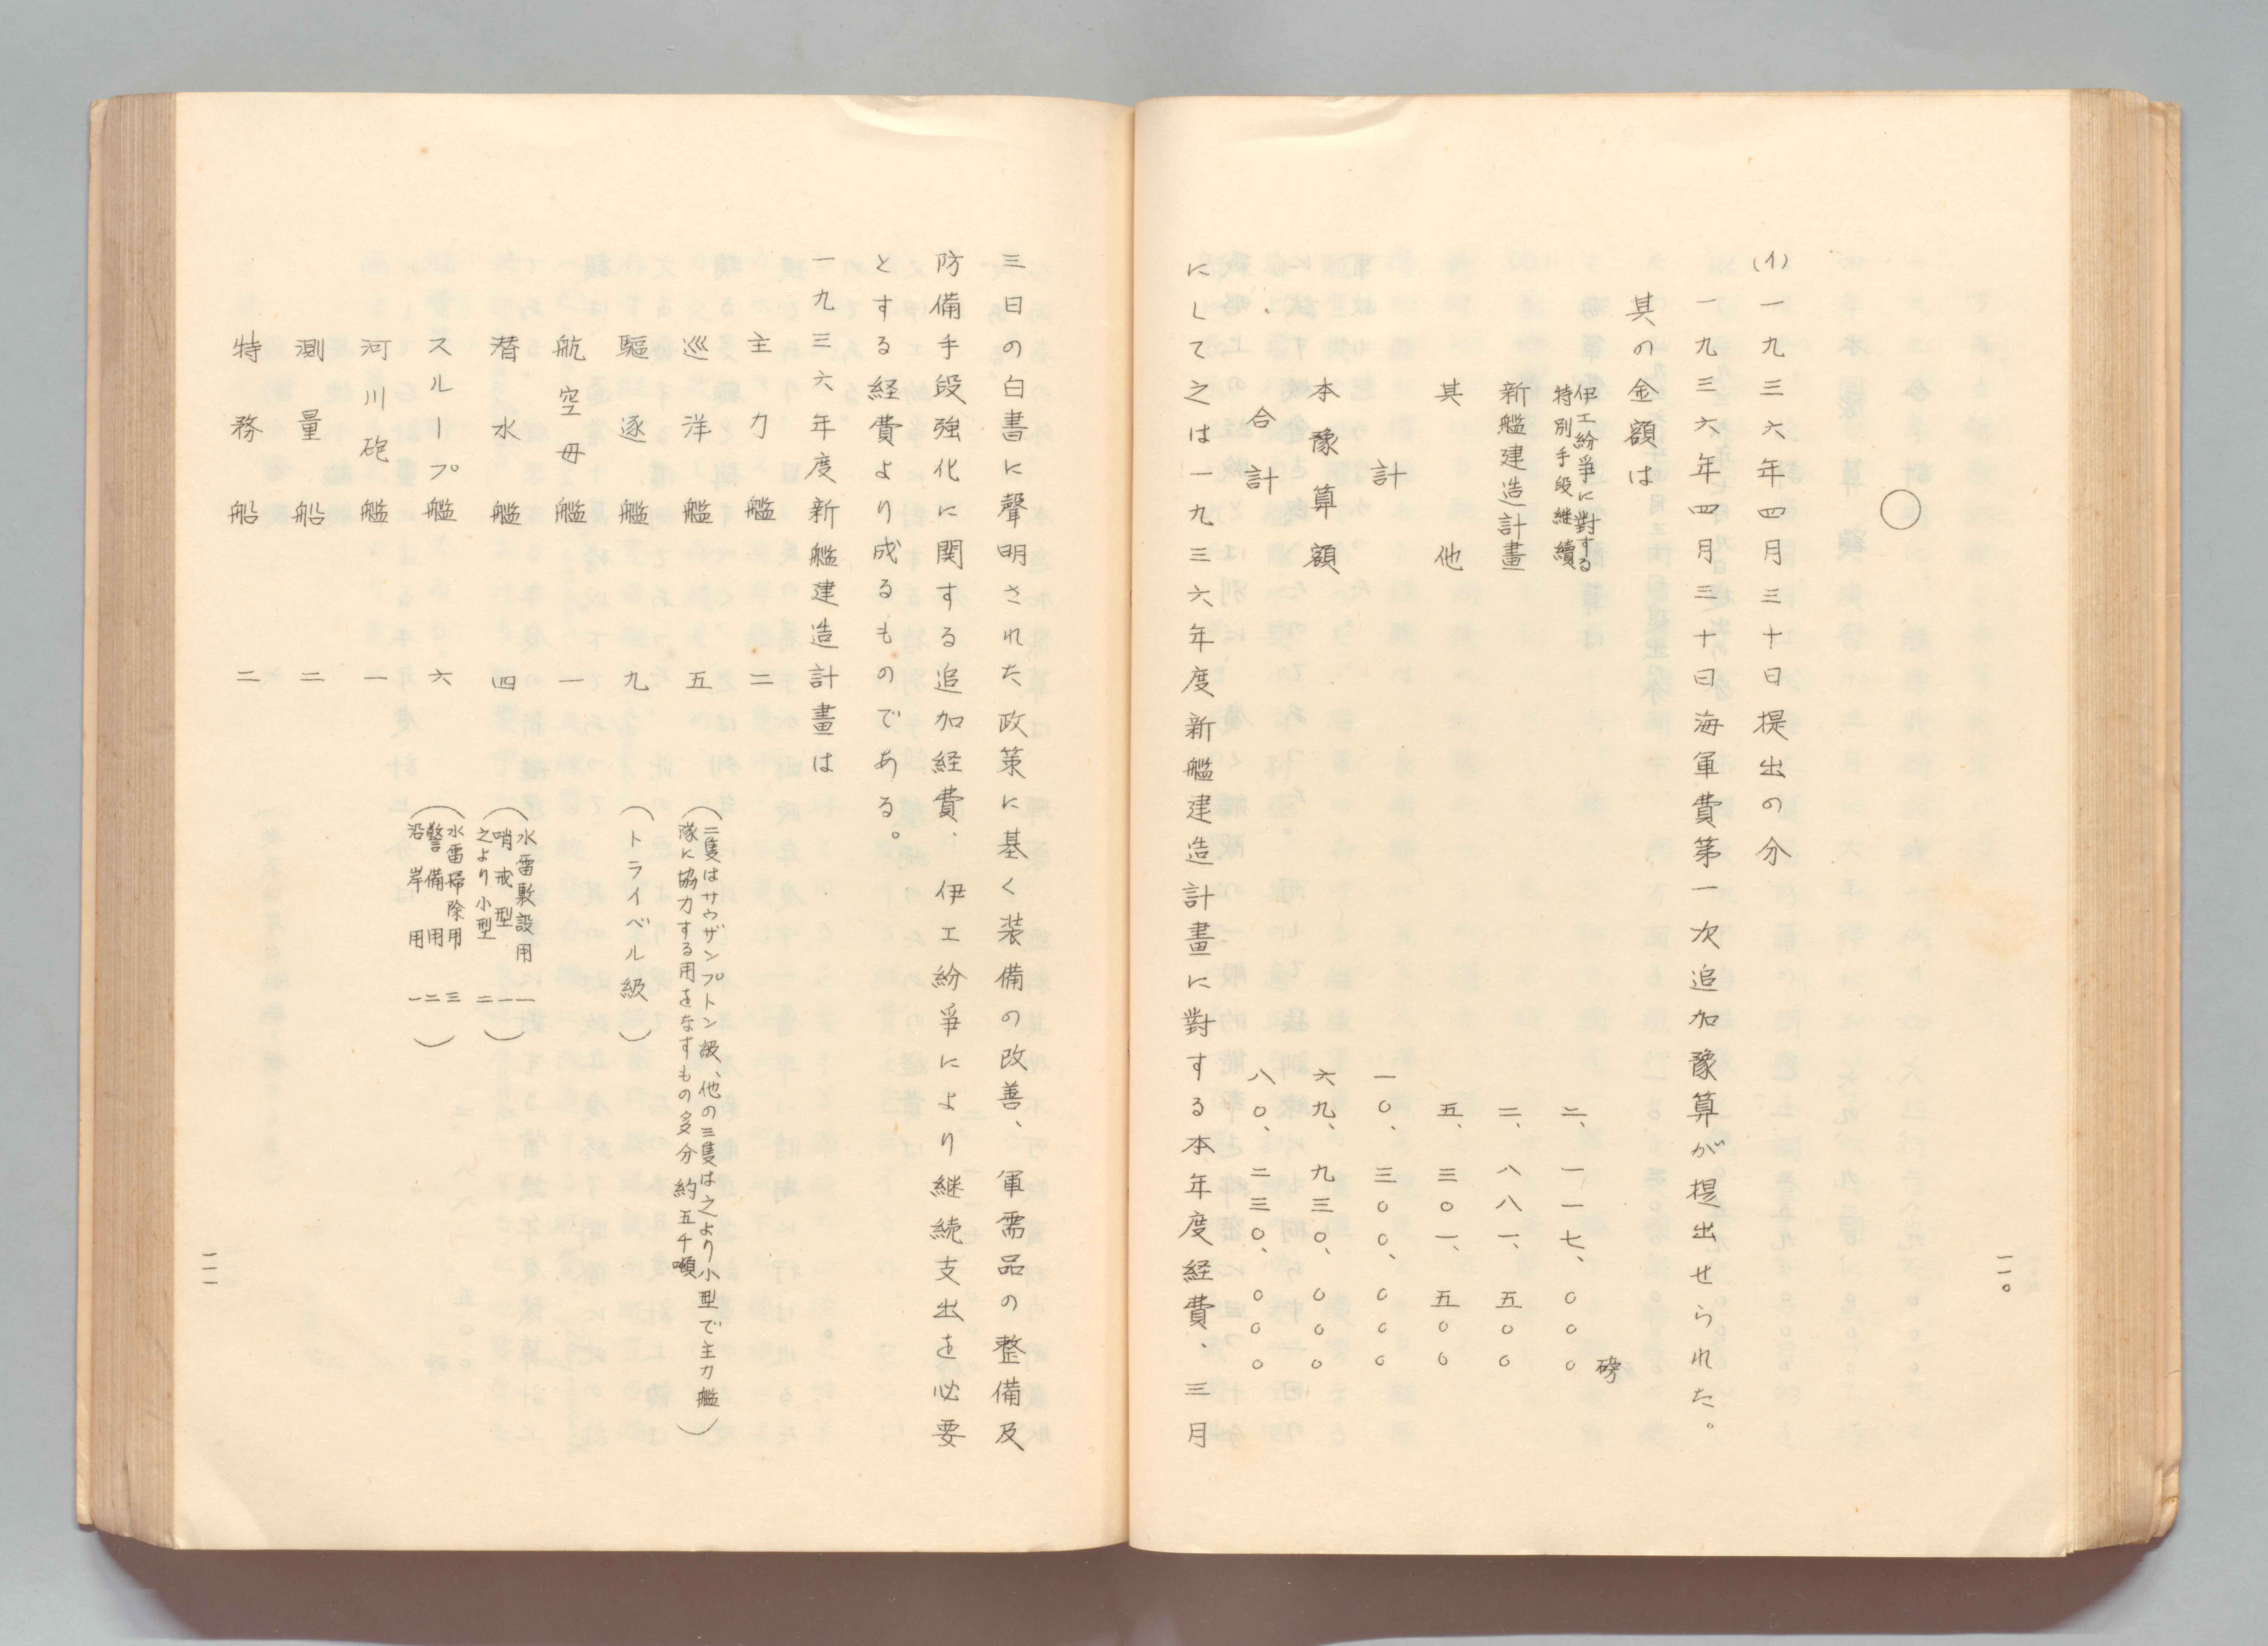 一一〇
○
(イ)一九三六年四月三十日提出の分
一九三六年四月三十日海軍費第一次追加豫算が提出せられた。
其の金額は
磅
伊エ紛爭に對する
特別手段継續 二、一一七、〇〇〇
新艦建造計畫 二、八八一、五〇〇
其他 五、三〇一、五〇〇
計 一〇、三〇〇、〇〇〇
本豫算額 六九、九三〇、〇〇〇
合計 八〇、二三〇、〇〇〇
にして之は一九三六年度新艦建造計畫に對する本年度経費、三月
三日の白書に聲明された政策に基く装備の改善、軍需品の整備及
防備手段強化に関する追加経費、伊エ紛爭により継続支出を必要
とする経費より成るものである。
一九三六年度新艦建造計畫は
主力艦 二
巡洋艦 五 (二隻はサウザンプトン級、他の三隻は之より小型で主力艦
隊に協力する用をなすもの多分約五千噸)
驅逐艦 九 (トライベル級)
航空母艦 一
潜水艦 四 (水雷敷設用 一
哨戒型 一
之より小型 二)
スループ艦 六 (水雷掃除用 三
警備用 二
沿岸用 一)
河川砲艦 一
測量船 二
特務船 二
一一一